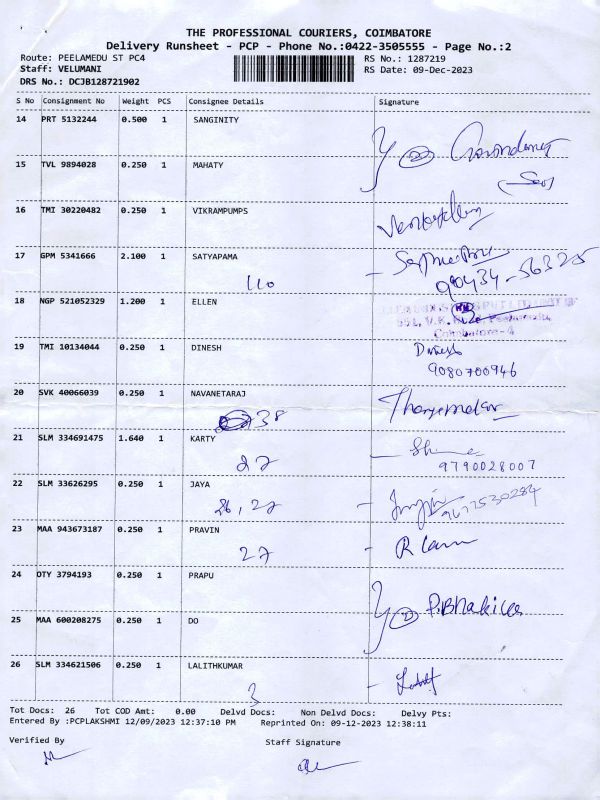 THE PROFESSIONAL COURIERS, COIMBATORE
Delivery Runsheet - PCP - Phone No.:0422-3505555 - Page No.:2
Route: PEELAMEDU ST PC4 RS No.: 1287219
Staff: VELUMANI RS Date: 09-Dec-2023
DRS No.: DCJB128721902
S No Consignment No Weight PCS Consignee Details Signature
14 PRT 5132244 0.500 1 SANGINITY
15 TVL 9894028 0.250 1 MAHATY
16 TMI 30220482 0.250 1 VIKRAMPUMPS
17 GPM 5341666 2.100 1 SATYAPAMA
110 90434-56325
18 NGP 521052329 1.200 1 ELLEN
Coimbatore-4
19 TMI 10134044 0.250 1 DINESH Dinesh
9080700946
20 SVK 40066039 0.250 1 NAVANETARAJ
38
21 SLM 334691475 1.640 1 KARTY
27 9790028007
22 SLM 33626295 0.250 1 JAYA
26, 27
23 MAA 943673187 0.250 1 PRAVIN
27
24 OTY 3794193 0.250 1 PRAPU
25 MAA 600208275 0.250 1 DO
26 SLM 334621506 0.250 1 LALITHKUMAR
3
Tot Docs: 26 Tot COD Amt: 0.00 Delvd Docs: Non Delvd Docs: Delvy Pts:
Entered By :PCPLAKSHMI 12/09/2023 12:37:10 PM Reprinted On: 09-12-2023 12:38:11
Verified By Staff Signature